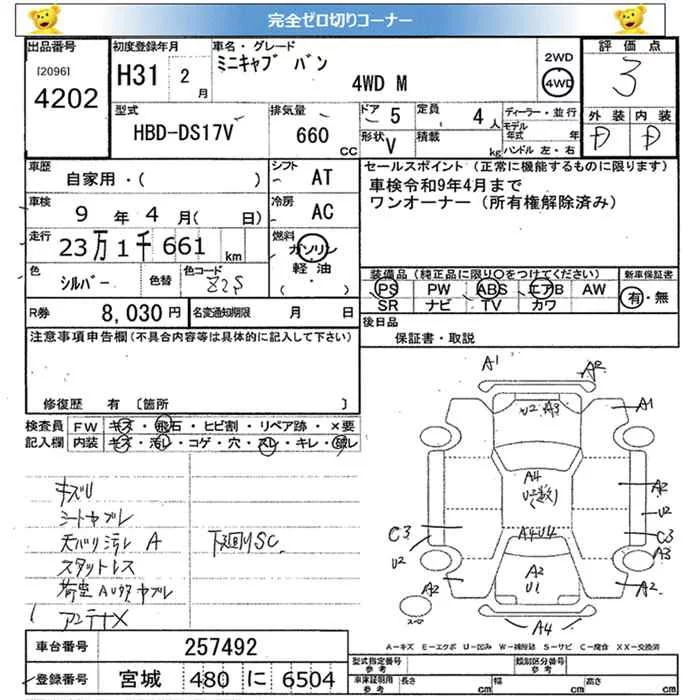 完全ゼロ切りコーナー
出品番号
[2096]
4202
初度登録年月
H31 2 月
車名・グレード
ミニキャブ バン
4WD M
2WD
4WD
評価点
3
外装 内装
D D
型式
HBD-DS17V
排気量
660 CC
ドア 5
定員 4 人
形状 V
積載 kg
ディーラー・並行
モデル年式 年
ハンドル 左・右
車歴
自家用・( )
シフト AT
車検
9 年 4 月( 日)
冷房 AC
走行
23万1千661 km
燃料
ガソリン
軽油
( ・ )
色 シルバー 色替
色コード Z2S
R券 8,030 円
名変通知期限 月 日
セールスポイント(正常に機能するものに限ります)
車検令和9年4月まで
ワンオーナー(所有権解除済み)
装備品(純正品に限り○をつけてください)
PS PW ABS エアB AW
SR ナビ TV カワ
新車保証書
有・無
後日品
保証書・取説
注意事項申告欄(不具合内容等は具体的に記入して下さい)
修復歴 有 〔箇所 〕
検査員記入欄
FW キズ・飛石・ヒビ割・リペア跡・×要
内装 キズ・汚レ・コゲ・穴・スレ・キレ・破レ
キズU
シートヤブレ
天バリ汚レ A
下廻りSC
スタットレス
荷室AUタタヤブレ
アンテナX
A1 A2
U2 A3
A1
A4
U2(多数)
A2
U2
C3
C3
U2
A4U4
A3
A2
A2
U1
A2
A4
スペア
A－キズ E－エクボ U－凹み W－補修跡 S－サビ C－腐食 XX－交換済
車台番号 257492
登録番号 宮城 480 に 6504
型式指定番号 参考
類別区分番号 参考
車体証明用 参考
長さ cm
幅 cm
高さ cm